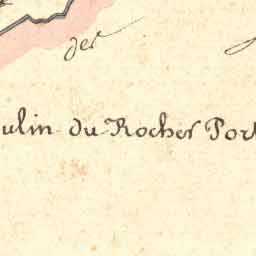 der
oulin du Rocher Port